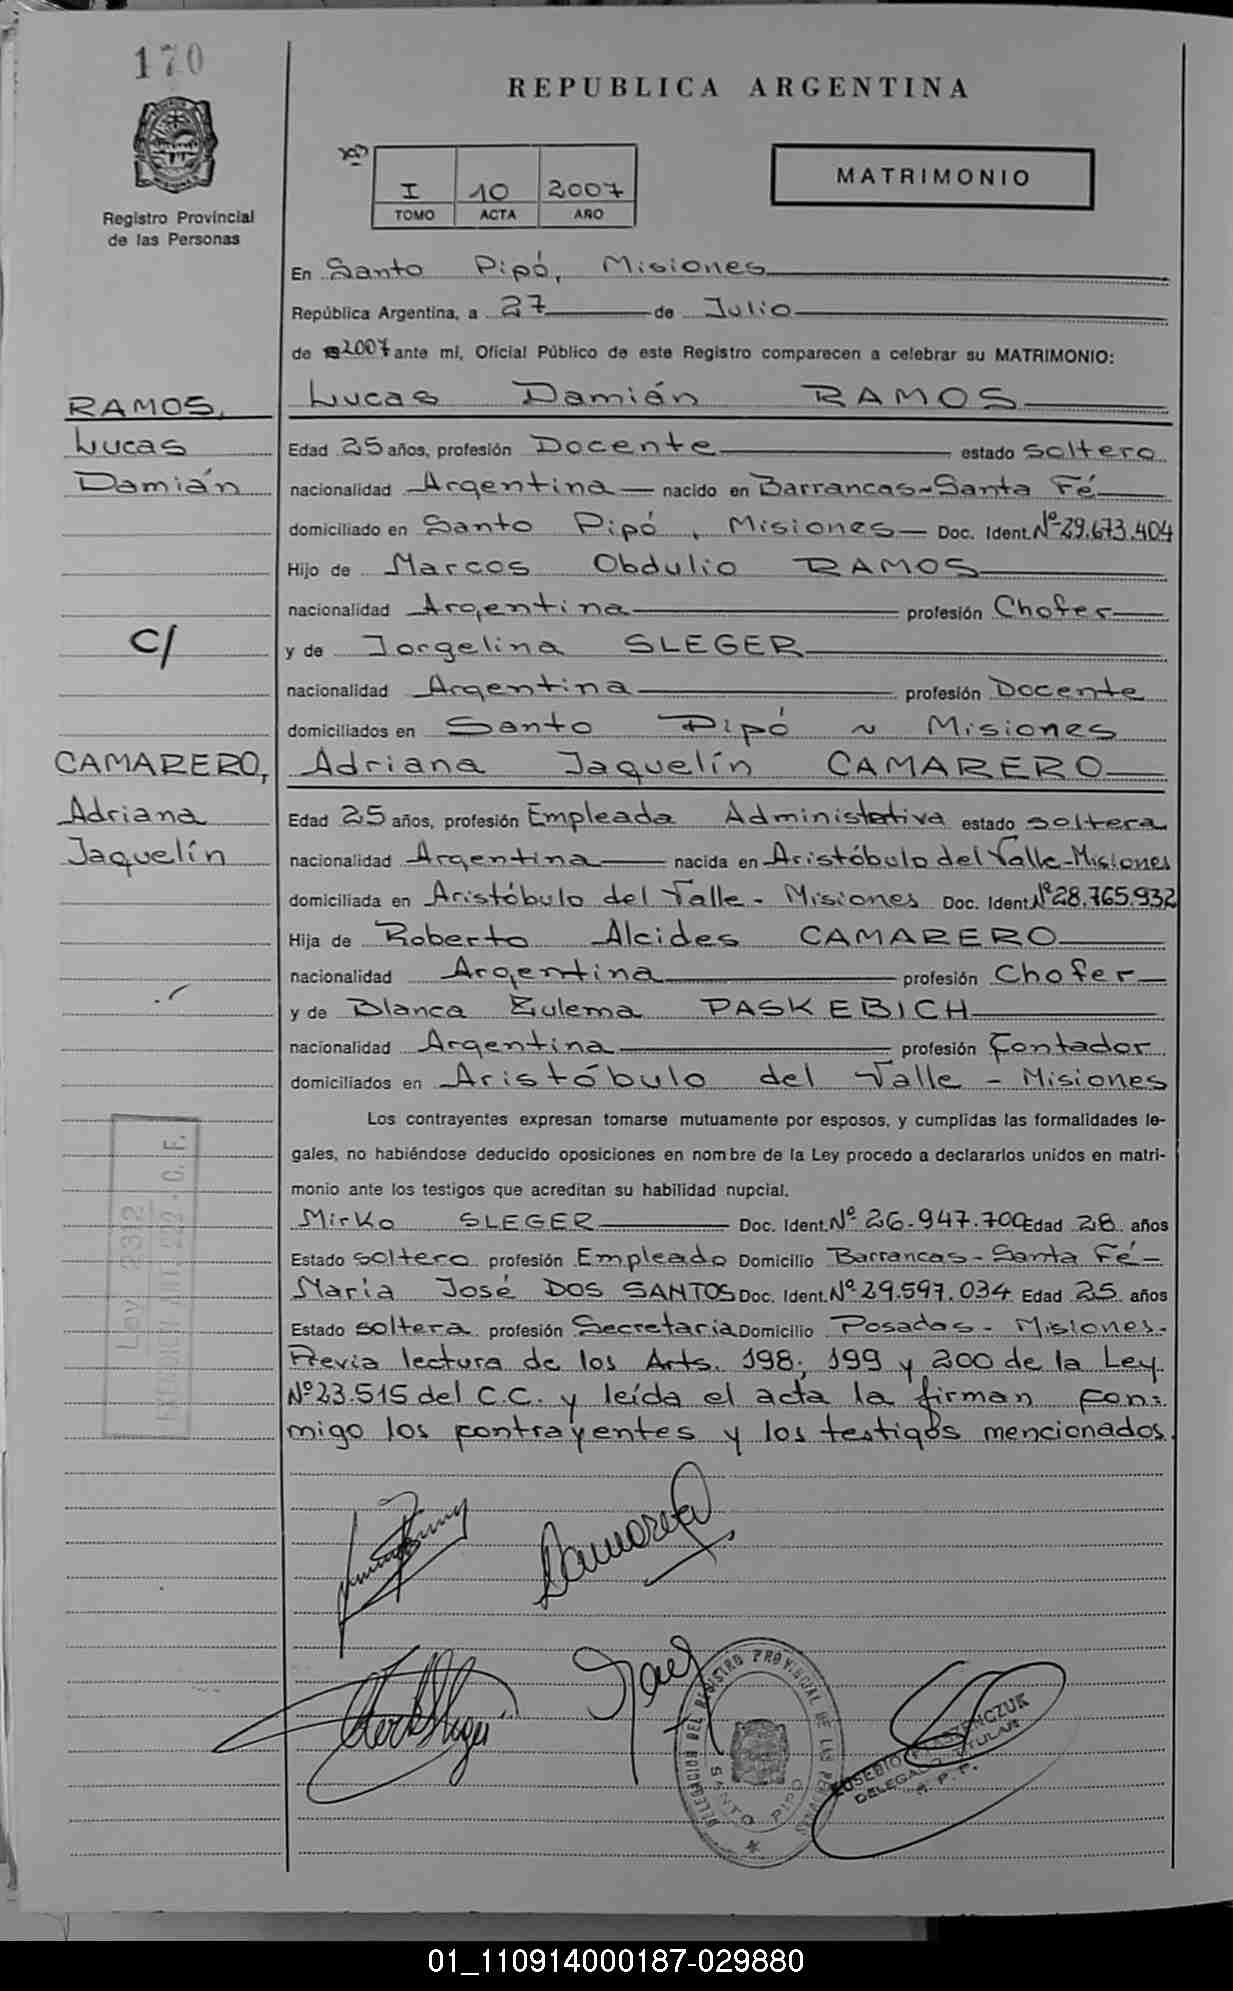 170
REPUBLICA ARGENTINA
Registro Provincial
de las Personas
Nº
I 10 2007
TOMO ACTA AÑO
MATRIMONIO
En Santo Pipó, Misiones
República Argentina, a 27 de Julio
de 2007 ante mí, Oficial Público de este Registro comparecen a celebrar su MATRIMONIO:
RAMOS,
Lucas
Damián
C/
CAMARERO,
Adriana
Jaquelín
Lucas Damián RAMOS
Edad 25 años, profesión Docente estado soltero
nacionalidad Argentina nacido en Barrancas-Santa Fé
domiciliado en Santo Pipó, Misiones Doc. Ident. Nº 29.673.404
Hijo de Marcos Obdulio RAMOS
nacionalidad Argentina profesión Chofer
y de Jorgelina SLEGER
nacionalidad Argentina profesión Docente
domiciliados en Santo Pipó ~ Misiones
Adriana Jaquelín CAMARERO
Edad 25 años, profesión Empleada Administrativa estado soltera
nacionalidad Argentina nacida en Aristóbulo del Valle-Misiones
domiciliada en Aristóbulo del Valle - Misiones Doc. Ident. Nº 28.765.932
Hija de Roberto Alcides CAMARERO
nacionalidad Argentina profesión Chofer
y de Blanca Zulema PASKEBICH
nacionalidad Argentina profesión Contador
domiciliados en Aristóbulo del Valle - Misiones
Los contrayentes expresan tomarse mutuamente por esposos, y cumplidas las formalidades le-
gales, no habiéndose deducido oposiciones en nombre de la Ley procedo a declararlos unidos en matri-
monio ante los testigos que acreditan su habilidad nupcial.
Mirko SLEGER Doc. Ident. Nº 26.947.700 Edad 28 años
Estado soltero profesión Empleado Domicilio Barrancas-Santa Fé-
María José DOS SANTOS Doc. Ident. Nº 29.597.034 Edad 25 años
Estado soltera profesión Secretaria Domicilio Posadas - Misiones.
Previa lectura de los Arts. 198; 199 y 200 de la Ley
Nº 23.515 del C.C. y leída el acta la firman con:
migo los contrayentes y los testigos mencionados.
Ley 2332
DELEGACION DEL REGISTRO PROVINCIAL DE LAS PERSONAS
SANTO PIPO
EUSEBIO
DELEGADO TITULAR
R. P. P.
01_110914000187-029880